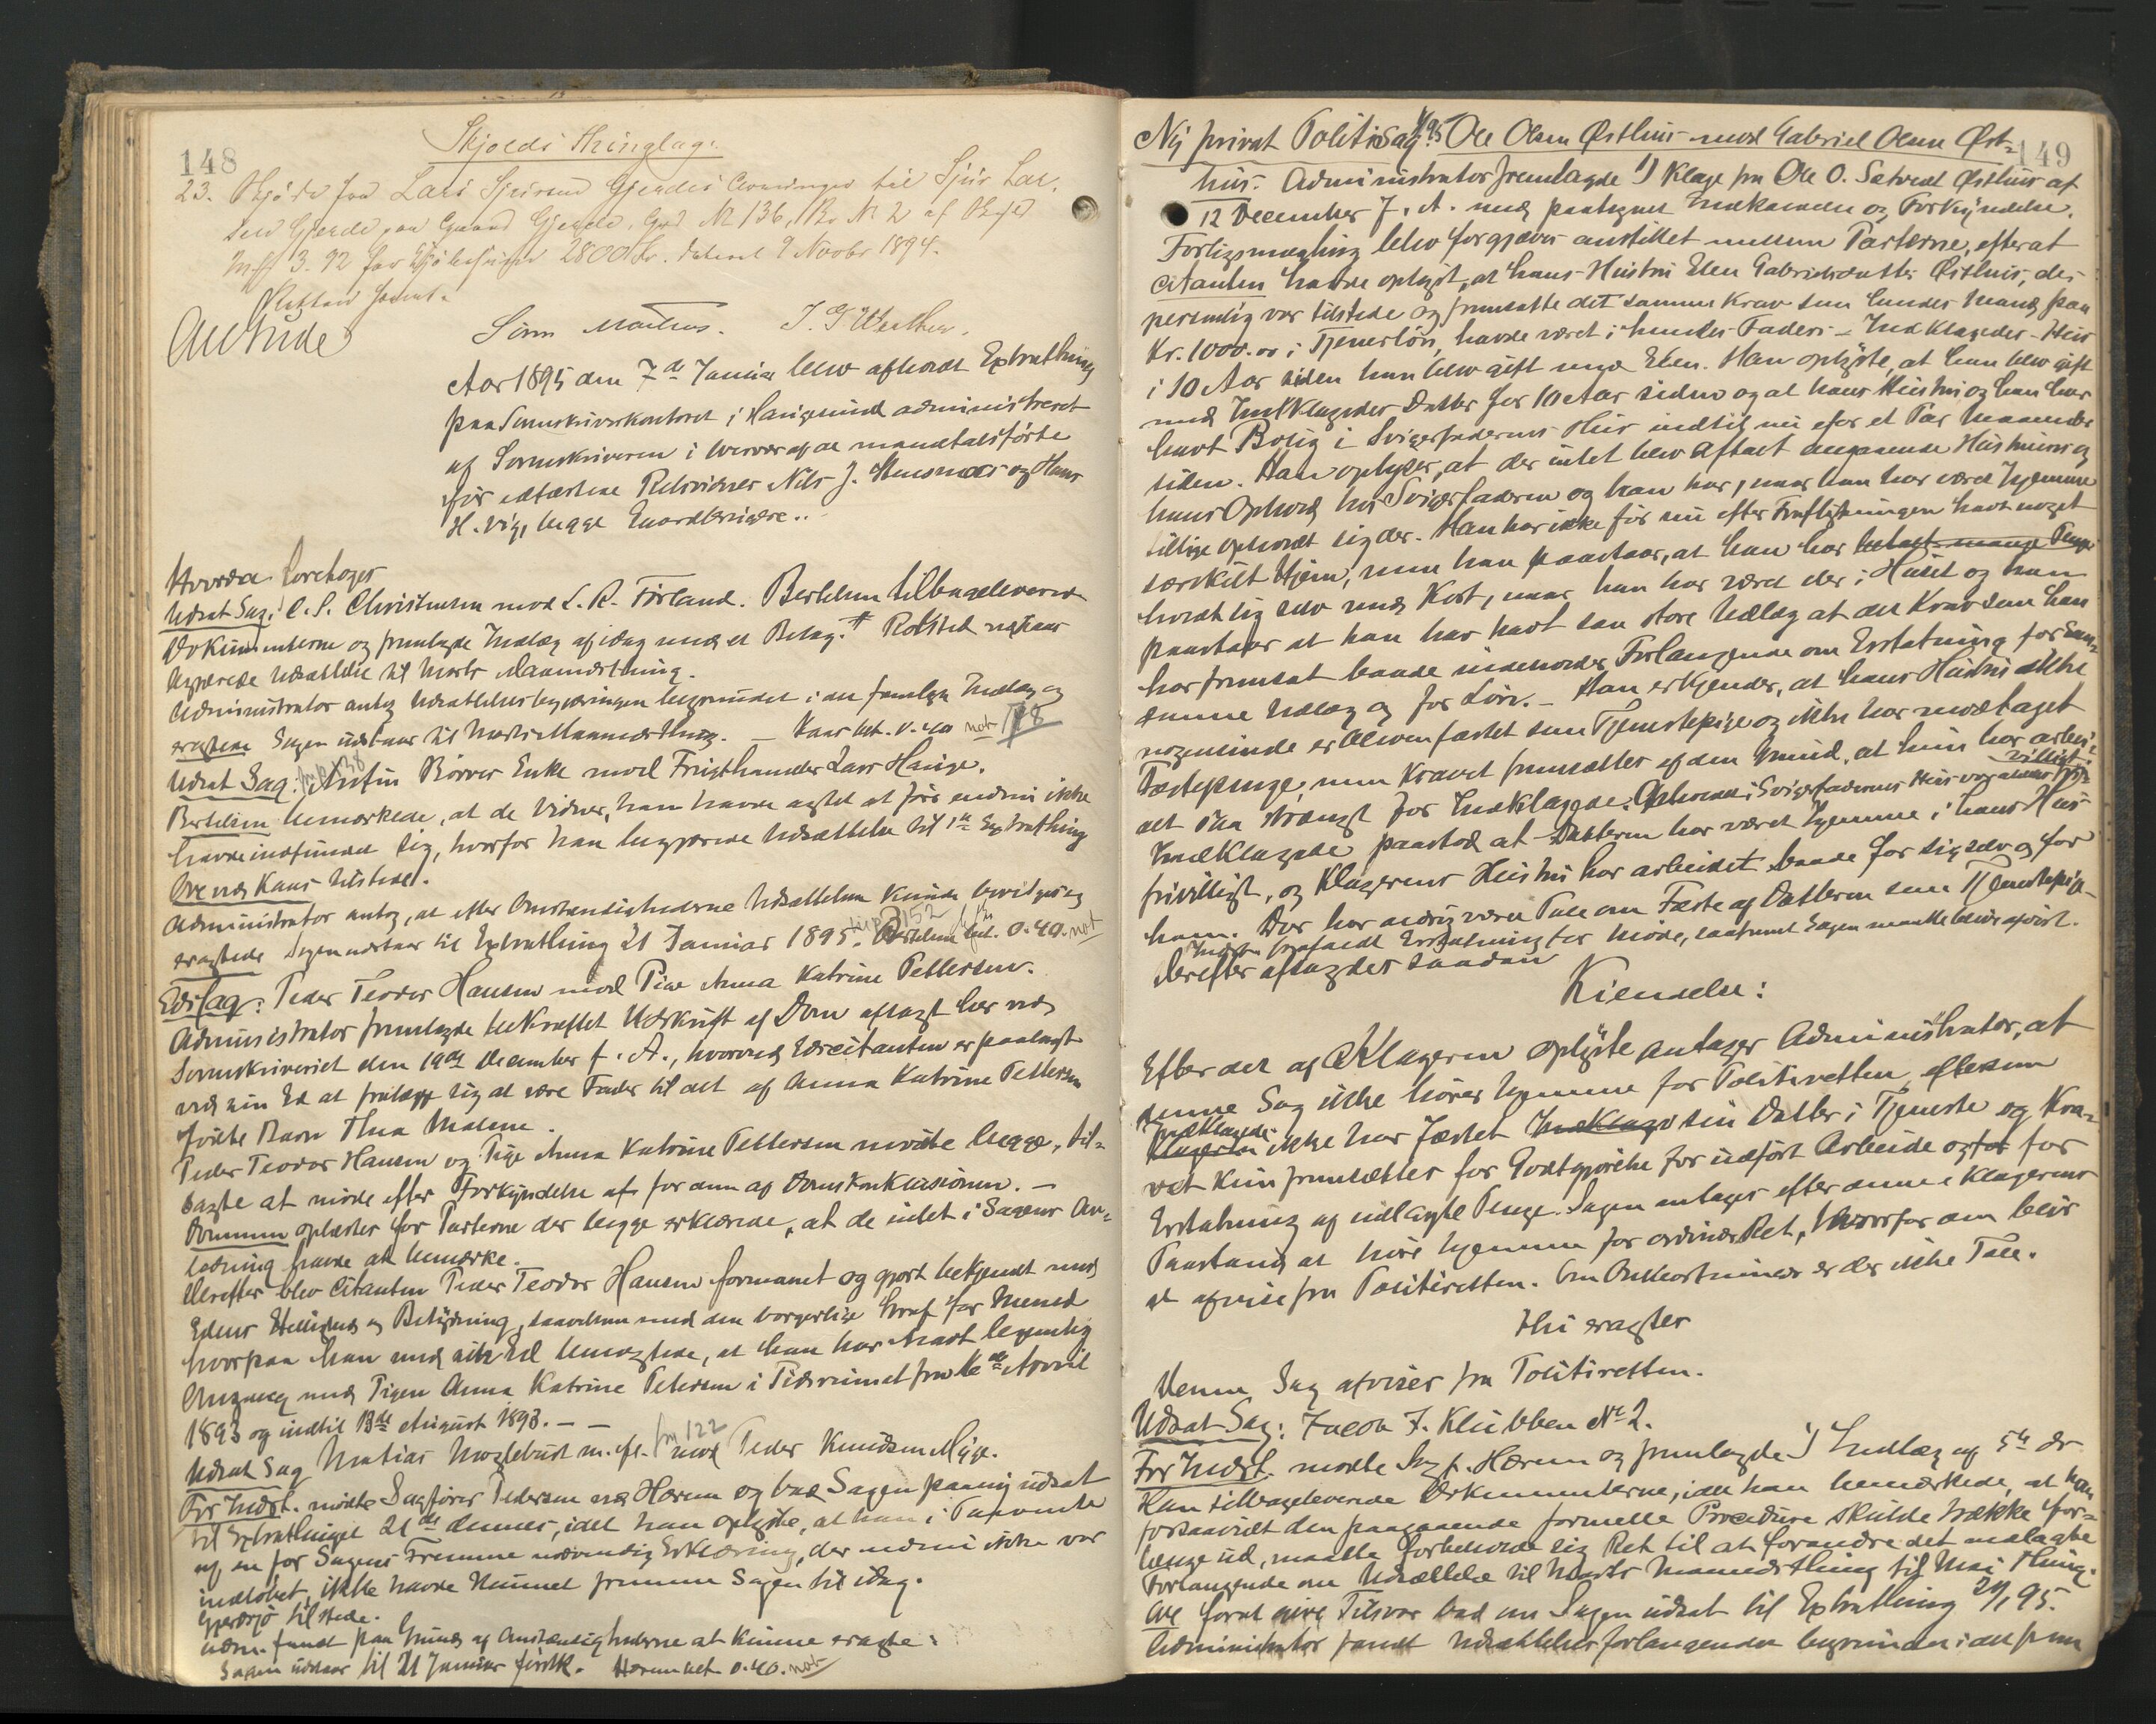 148
Skjolds Thinglag.
23. Skjøde fra Lars Sjursen Gjerdes til Sjur Lar-
sen Gjerde paa Gaard Gjerde, Grd N 136, Br. N 2 af Skyld
Mk 3.92 for Kjøbesum 2800 Kr. dateret 9 Novbr 1894.
Retten hævet.
J. G. Werther.
Aar 1895 den 7de Januar blev afholdt Extrathing
paa Sorenskriverkontoret i Haugesund administreret
af Sorenskriveren i Overvær af de mandtalsførte
før edfæstede Retsvidner Nils J. Stensnæs og Hans
H. Vig, begge Edsvorne.
Hvorda foretoges
Udsat Sag: C. S. Christensen mod L. R. Førland. Bertelsen tilbageleverede
Dokumenterne og fremlagde Indlæg af idag med et Bilag. Rolsted
begjærede Udsættelse til Marts Maanedsthing.
Administrator antog Udsættelsesbegjæringen begrundet i det fremlagte Indlæg og
eragtede Sagen udstaar til Marts Maanedsthing. — not 178
Udsat Sag: fr p 138 Anfin Rørvers Enke mod Frugthandler Lars Hauge.
Bertelsen bemærkede, at de Vidner, han havde agtet at før endnu ikke
havde indfundet sig, hvorfor han begjærede Udsættelse til 1ste Extrathing
tilstede.
Administrator antog, at efter Omstændighederne Udsættelsen kunde bevilges og
eragtede Sagen udstaar til Extrathing 21 Januar 1895. til p 152 Bertelsen bet. 0.40. not
Edssag: Peder Teodor Hansen mod Pige Anna Katrine Pettersen.
Administrator fremlagde bekræftet Udskrift af Dom afsagt her ved
Sorenskriveriet den 19de December f. A., hvorved Edscitanten er paalagt
ved sin Ed at fralægge sig at være Fader til det af Anna Katrine Pettersen
fødte Barn Thea Malene.
Peder Teodor Hansen og Pige Anna Katrine Pettersen mødte begge, til-
sagte at møde efter Forkyndelse af for dem af Domskonklusionen. —
Dommen oplæstes for Parterne der begge erklærede, at de intet i Sagens An-
ledning havde at bemærke.
Derefter blev Citanten Peder Teodor Hansen formanet og gjort bekjendt med
Edens Hellighed og Betydning, saavelsom med den borgerlige Straf for Mened
hvorpaa han med sin Ed benegtede, at han har havt legemlig
Omgang med Pigen Anna Katrine Petersen i Tidsrummet fra 16de April
1893 og indtil 13de August 1893. — —
Udsat Sag Matias Mogleburst m. fl. fra 122 mod Peder Knudsen Myge.
For Indst. mødte Sagfører Pedersen ved Hærem og bad Sagen paany udsat
til Extrathinget 21de dennes, idet han oplyste, at han i Paavente
af en for Sagens Fremme nødvendig Erklæring, der endnu ikke var
indløbet, ikke havde kunnet fremme Sagen til idag.
Gjerdsjø tilstede.
Adm. fandt paa Grund af Omstændighederne at kunne eragte:
Sagen udstaar til 21 Januar førstk. Hærem bet 0.40. not
149
Ny privat Politisag 1/95 Ole Olsen Østhus mod Gabriel Olsen Øst-
hus. Administrator fremlagde 1) Klage fra Ole O. Østhus af
12 December f. A. med paategnet Indkaldelse og Forkyndelse.
Forligsmægling blev forgjæves anstillet mellem Parterne, efter at
Citanten havde oplyst, at hans Hustru Elen Gabrielsdatter Østhus, der
personlig var tilstede og fremsatte det samme Krav som hendes Mand paa
Kr. 1000.00 i Tjenerløn, havde været i hendes Faders – Indklagedes – Hus
i 10 Aar siden han blev gift med Elen. Han oplyste, at han blev gift
med Indklagedes Datter for 10 Aar siden og at hans Hustru og han har
havt Bolig i Svigerfaderens Hus indtil nu for et Par Maaneder
siden. Han oplyser, at der intet blev aftalt angaaende Hustruens og
hans Ophold hos Svigerfaderen og han har, naar han har været hjemme
tillige opholdt sig der. Han har ikke før nu efter Fraflytningen havt noget
særskilt Hjem, men han paastaar, at han har
holdt sig selv med Kost, naar han har været der i Huset og han
paastaar at han har havt saa store Udlæg at det Krav som han
har fremsat baade indeholder Forlangende om Erstatning for saa-
danne Udlæg og for Løn. – Han erkjender, at hans Hustru ikke
nogensinde er bleven fæstet som Tjenestepige og ikke har modtaget
Fæstepenge, men Kravet fremsættes af den Grund, at hun har arbei-
det saa strængt for Indklagede. Opholdet i Svigerfaderens Hus var
Indklagede paastod at Datteren har været hjemme i hans Hus
frivilligt, og Klagerens Hustru har arbeidet baade for sig selv og for
ham. Der har aldrig været Tale om Fæste af Datteren som Tjenestepige.
Indst. frafaldt Erstatning for Møde, saafremt Sagen maatte blive afvist.
Derefter afsagdes saadan
Kjendelse:
Efter det af Klageren oplyste antager Administrator, at
denne Sag ikke hører hjemme for Politiretten, eftersom
Indklagede ikke har fæstet sin Datter i Tjeneste og Kra-
vet kun fremsættes for Godtgjørelse for udført Arbeide og for
Erstatning af udlagte Penge. Sagen antages efter denne Klagerens
Paastand at høre hjemme for ordinær Ret, hvorfor den blir
at afvise fra Politiretten. Om Omkostninger er der ikke Tale.
Thi eragtes
Denne Sag afvises fra Politiretten.
Udsat Sag: Jacob J. Klubben No 2.
For Indst. mødte Sagf. Hærem og fremlagde 1) Indlæg af 5te ds
Han tilbageleverede Dokumenterne, idet han bemærkede, at han
forsaavidt den paagaaende formelle Procedure skulde trække for-
længe ud, maatte forbeholde sig Ret til at forandre det nedlagte
Forlangende om Udsættelse til Marts Maanedsthing til Mai Thing.
for at give Tilsvar bad om Sagen udsat til Extrathing 21/1 95.
Administrator fandt Udsættelsesforlangendet begrundet i det frem